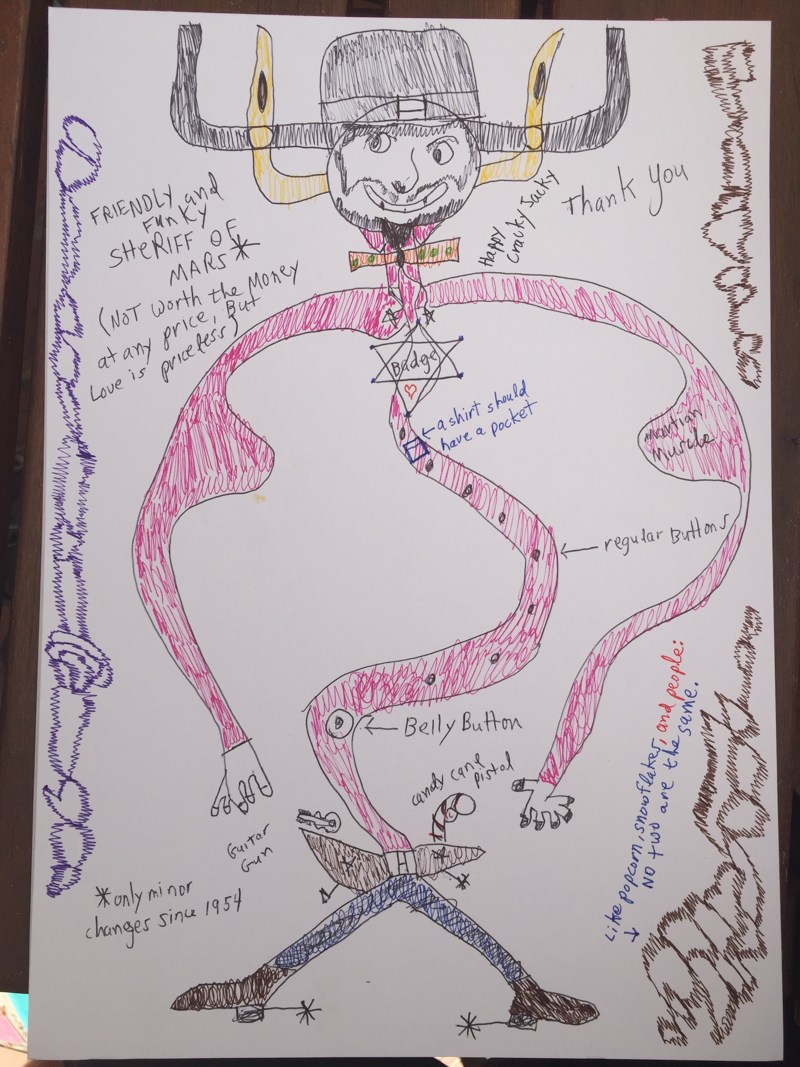 FRIENDLY and
FUNKY
SHERIFF OF
MARS*
(NOT worth the Money
at any price, But
Love is priceless)
Happy
Cracky Jacky
Thank You
Badge
← a shirt should
have a pocket
martian
Muscle
← regular Buttons
← Belly Button
candy cane
pistol
Guitar
Gun
*only minor
changes since 1954
Like popcorn, snowflakes, and people:
↓ NO two are the same.